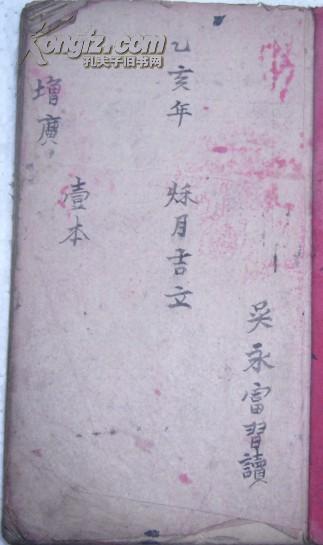 kongfz.com
孔夫子旧书网
乙亥年 秌月吉立
吳永富習讀
增廣
壹本